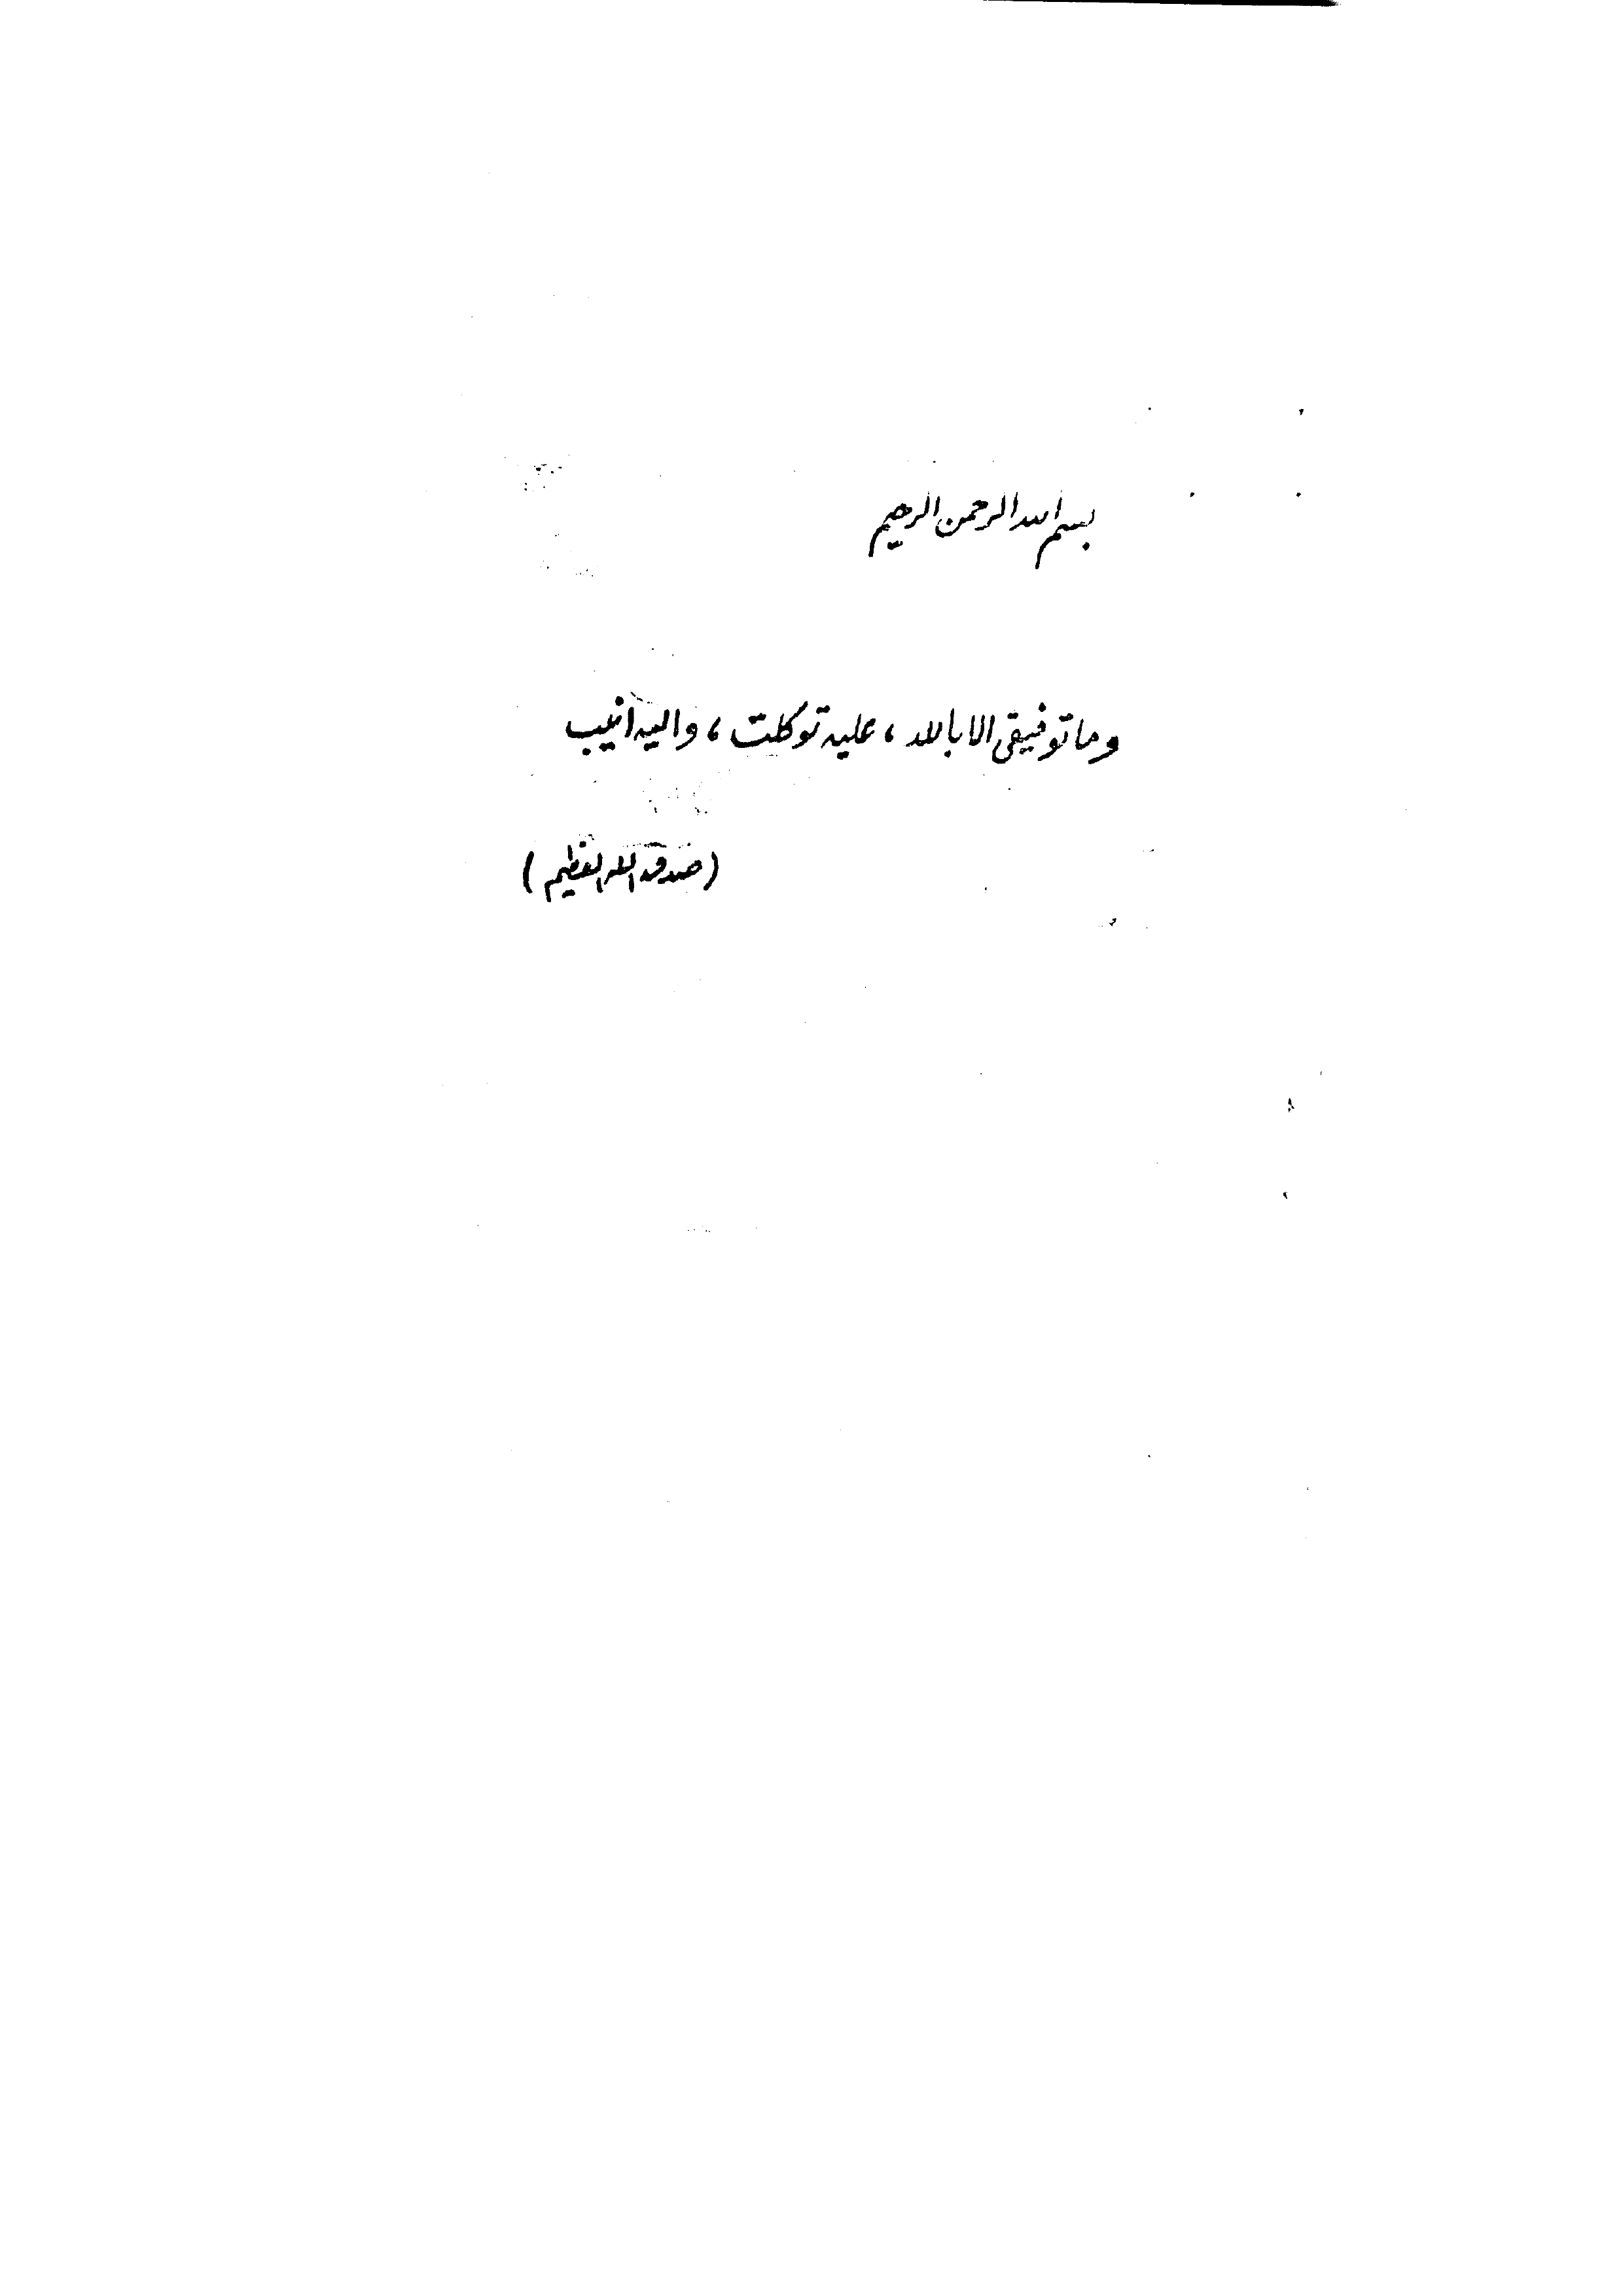 بسم الله الرحمن الرحيم
وما توفيقى الا بالله ، عليه توكلت ، واليه انيب
( صدق الله العظيم )